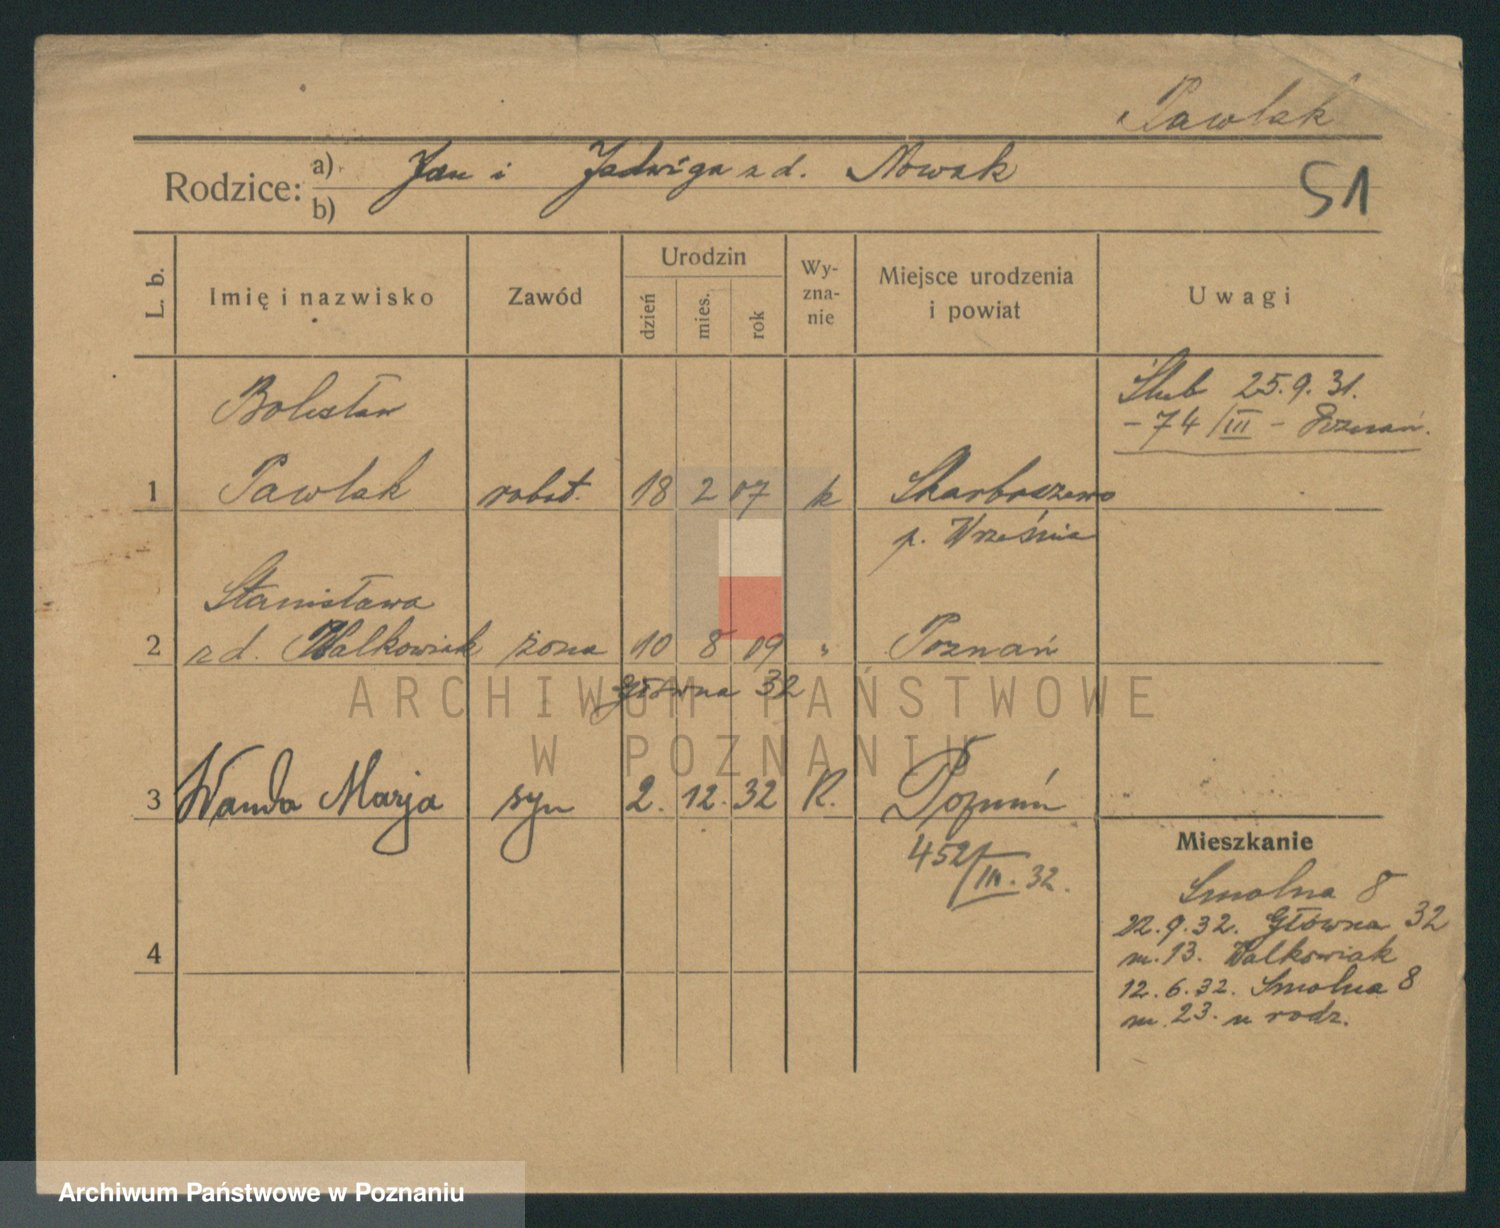 Pawlak
Rodzice: a) Jan i Jadwiga z d. Nowak
b)
51
L. b.
Imię i nazwisko
Zawód
Urodzin
dzień
mies.
rok
Wy-
zna-
nie
Miejsce urodzenia
i powiat
Uwagi
Bolesław
Ślub 25.9.31.
- 74/III - Poznań.
1 Pawlak robot. 18 2 07 k
p. Września
Stanisława
2 z d. Walkowiak żona 10 8 09 " Poznań
Główna 32
3 Wanda Marja syn 2. 12. 32 R. Poznań
452/III. 32.
4
Mieszkanie
Smolna 8
22.9.32. Główna 32
m. 13. Walkowiak
12.6.32. Smolna 8
m. 23. u rodz.
ARCHIWUM PAŃSTWOWE
W POZNANIU
Archiwum Państwowe w Poznaniu